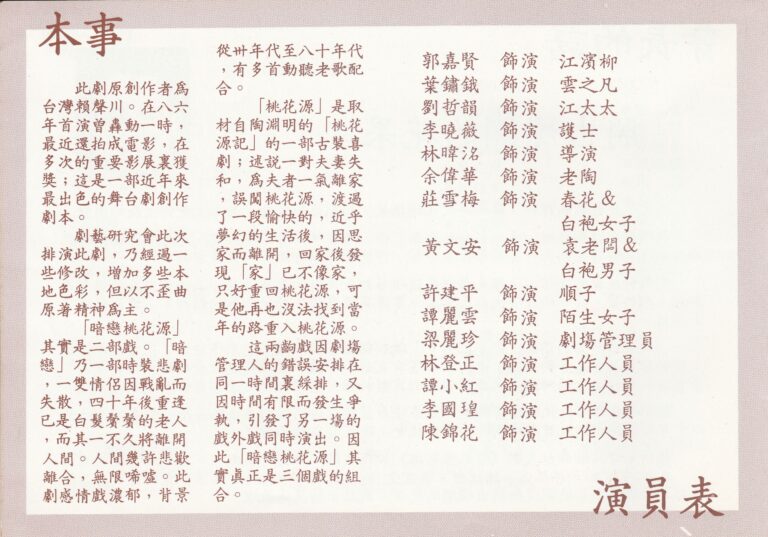 本事
此劇原創作者為
台灣賴聲川。在八六
年首演曾轟動一時，
最近還拍成電影，在
多次的重要影展裏獲
獎；這是一部近年來
最出色的舞台劇創作
劇本。
劇藝研究會此次
排演此劇，乃經過一
些修改，增加多些本
地色彩，但以不歪曲
原著精神為主。
「暗戀桃花源」
其實是二部戲。「暗
戀」乃一部時裝悲劇
，一雙情侶因戰亂而
失散，四十年後重逢
已是白髮鬢鬢的老人
，而其一不久將離開
人間。人間幾許悲歡
離合，無限唏噓。此
劇感情戲濃郁，背景
從卅年代至八十年代
，有多首動聽老歌配
合。
「桃花源」是取
材自陶淵明的「桃花
源記」的一部古裝喜
劇；述說一對夫妻失
和，為夫者一氣離家
，誤闖桃花源，渡過
了一段愉快的，近乎
夢幻的生活後，因思
家而離開，回家後發
現「家」已不像家，
只好重回桃花源，可
是他再也沒法找到當
年的路重入桃花源。
這兩齣戲因劇場
管理人的錯誤安排在
同一時間裏綵排，又
因時間有限而發生爭
執，引發了另一場的
戲外戲同時演出。因
此「暗戀桃花源」其
實真正是三個戲的組
合。
郭嘉賢 飾演 江濱柳
葉鏽鐵 飾演 雲之凡
劉哲韻 飾演 江太太
李曉薇 飾演 護士
林暐洺 飾演 導演
余偉華 飾演 老陶
莊雪梅 飾演 春花&
白袍女子
黃文安 飾演 袁老闆&
白袍男子
許建平 飾演 順子
譚麗雲 飾演 陌生女子
梁麗珍 飾演 劇場管理員
林登正 飾演 工作人員
譚小紅 飾演 工作人員
李國瑝 飾演 工作人員
陳錦花 飾演 工作人員
演員表